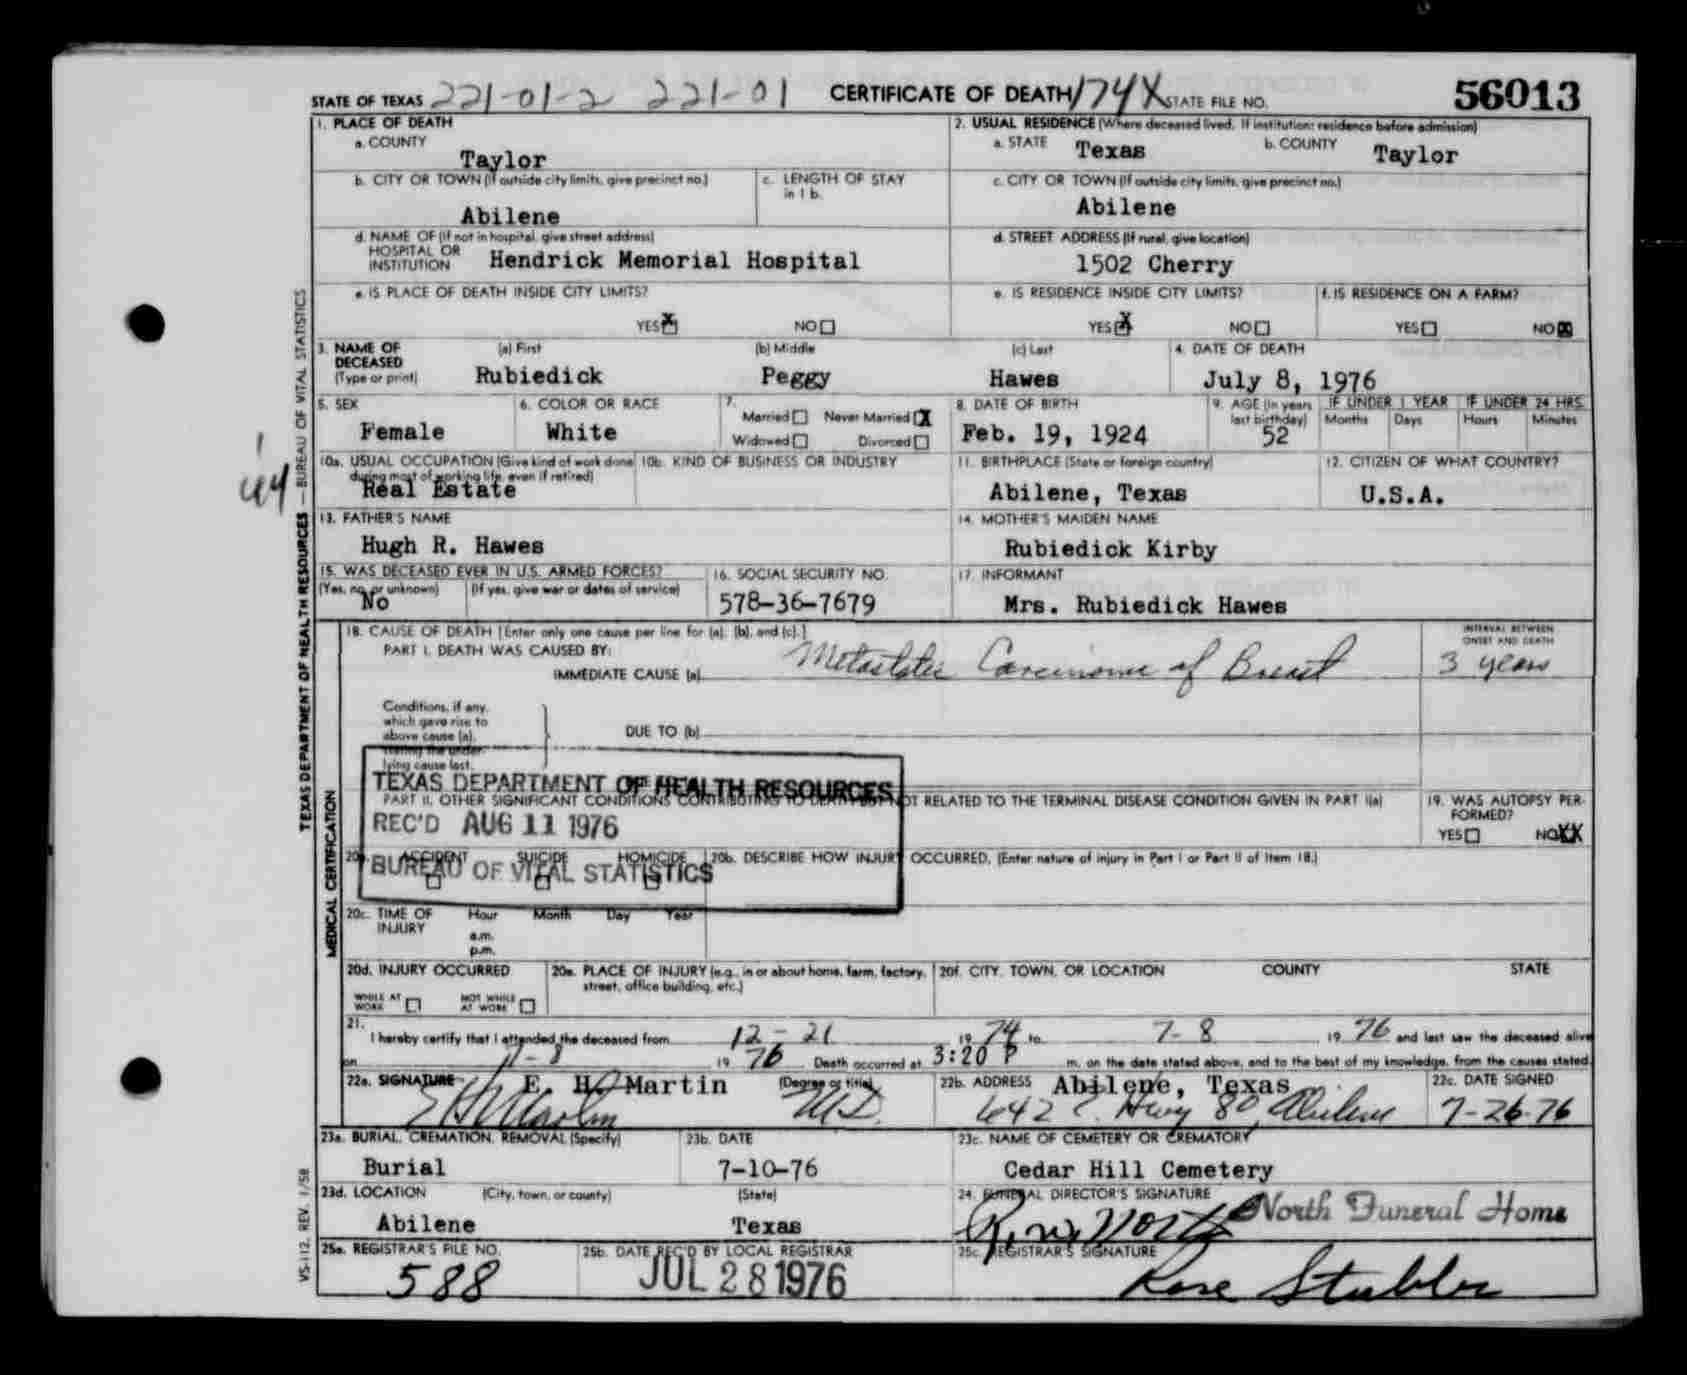 STATE OF TEXAS 221-01-2 221-01 CERTIFICATE OF DEATH 174X STATE FILE NO. 56013
1. PLACE OF DEATH
a. COUNTY
Taylor
2. USUAL RESIDENCE (Where deceased lived. If institution: residence before admission)
a. STATE Texas b. COUNTY Taylor
b. CITY OR TOWN (If outside city limits, give precinct no.)
Abilene
c. LENGTH OF STAY
in 1 b.
c. CITY OR TOWN (If outside city limits, give precinct no.)
Abilene
d. NAME OF (If not in hospital, give street address)
HOSPITAL OR
INSTITUTION Hendrick Memorial Hospital
d. STREET ADDRESS (If rural, give location)
1502 Cherry
e. IS PLACE OF DEATH INSIDE CITY LIMITS?
YES X NO
e. IS RESIDENCE INSIDE CITY LIMITS?
YES X NO
f. IS RESIDENCE ON A FARM?
YES NO X
3. NAME OF
DECEASED
(Type or print)
(a) First
Rubiedick
(b) Middle
Peggy
(c) Last
Hawes
4. DATE OF DEATH
July 8, 1976
5. SEX
Female
6. COLOR OR RACE
White
7.
Married Never Married X
Widowed Divorced
8. DATE OF BIRTH
Feb. 19, 1924
9. AGE (In years
last birthday)
52
IF UNDER 1 YEAR
Months Days
IF UNDER 24 HRS.
Hours Minutes
10a. USUAL OCCUPATION (Give kind of work done
during most of working life, even if retired)
Real Estate
10b. KIND OF BUSINESS OR INDUSTRY
11. BIRTHPLACE (State or foreign country)
Abilene, Texas
12. CITIZEN OF WHAT COUNTRY?
U.S.A.
13. FATHER'S NAME
Hugh R. Hawes
14. MOTHER'S MAIDEN NAME
Rubiedick Kirby
15. WAS DECEASED EVER IN U.S. ARMED FORCES?
(Yes, no, or unknown) (If yes, give war or dates of service)
No
16. SOCIAL SECURITY NO.
578-36-7679
17. INFORMANT
Mrs. Rubiedick Hawes
18. CAUSE OF DEATH [Enter only one cause per line for (a), (b), and (c).]
PART I. DEATH WAS CAUSED BY:
IMMEDIATE CAUSE (a) Metastatic Carcinoma of Breast
INTERVAL BETWEEN
ONSET AND DEATH
3 years
Conditions, if any,
which gave rise to
above cause (a),
stating the under-
lying cause last.
DUE TO (b)
TEXAS DEPARTMENT OF HEALTH RESOURCES
REC'D AUG 11 1976
BUREAU OF VITAL STATISTICS
PART II. OTHER SIGNIFICANT CONDITIONS CONTRIBUTING TO DEATH BUT NOT RELATED TO THE TERMINAL DISEASE CONDITION GIVEN IN PART I(a)
19. WAS AUTOPSY PER-
FORMED?
YES NO XX
20a. ACCIDENT SUICIDE HOMICIDE
20b. DESCRIBE HOW INJURY OCCURRED. (Enter nature of injury in Part I or Part II of Item 18.)
20c. TIME OF
INJURY
Hour Month Day Year
a.m.
p.m.
20d. INJURY OCCURRED
WHILE AT
WORK
NOT WHILE
AT WORK
20e. PLACE OF INJURY (e.g., in or about home, farm, factory,
street, office building, etc.)
20f. CITY, TOWN, OR LOCATION COUNTY STATE
21.
I hereby certify that I attended the deceased from 12-21 1974 to 7-8 1976 and last saw the deceased alive
on 1976. Death occurred at 3:20 P m. on the date stated above, and to the best of my knowledge, from the causes stated.
22a. SIGNATURE E. H. Martin (Degree or title)
EH Martin MD.
22b. ADDRESS Abilene, Texas
642 E. Hwy 80, Abilene
22c. DATE SIGNED
7-26-76
23a. BURIAL, CREMATION, REMOVAL (Specify)
Burial
23b. DATE
7-10-76
23c. NAME OF CEMETERY OR CREMATORY
Cedar Hill Cemetery
23d. LOCATION (City, town, or county) (State)
Abilene Texas
24. FUNERAL DIRECTOR'S SIGNATURE
North Funeral Home
25a. REGISTRAR'S FILE NO.
588
25b. DATE REC'D BY LOCAL REGISTRAR
JUL 28 1976
25c. REGISTRAR'S SIGNATURE
Rose Stubbs
TEXAS DEPARTMENT OF HEALTH RESOURCES — BUREAU OF VITAL STATISTICS
MEDICAL CERTIFICATION
VS-112, REV. 1/58